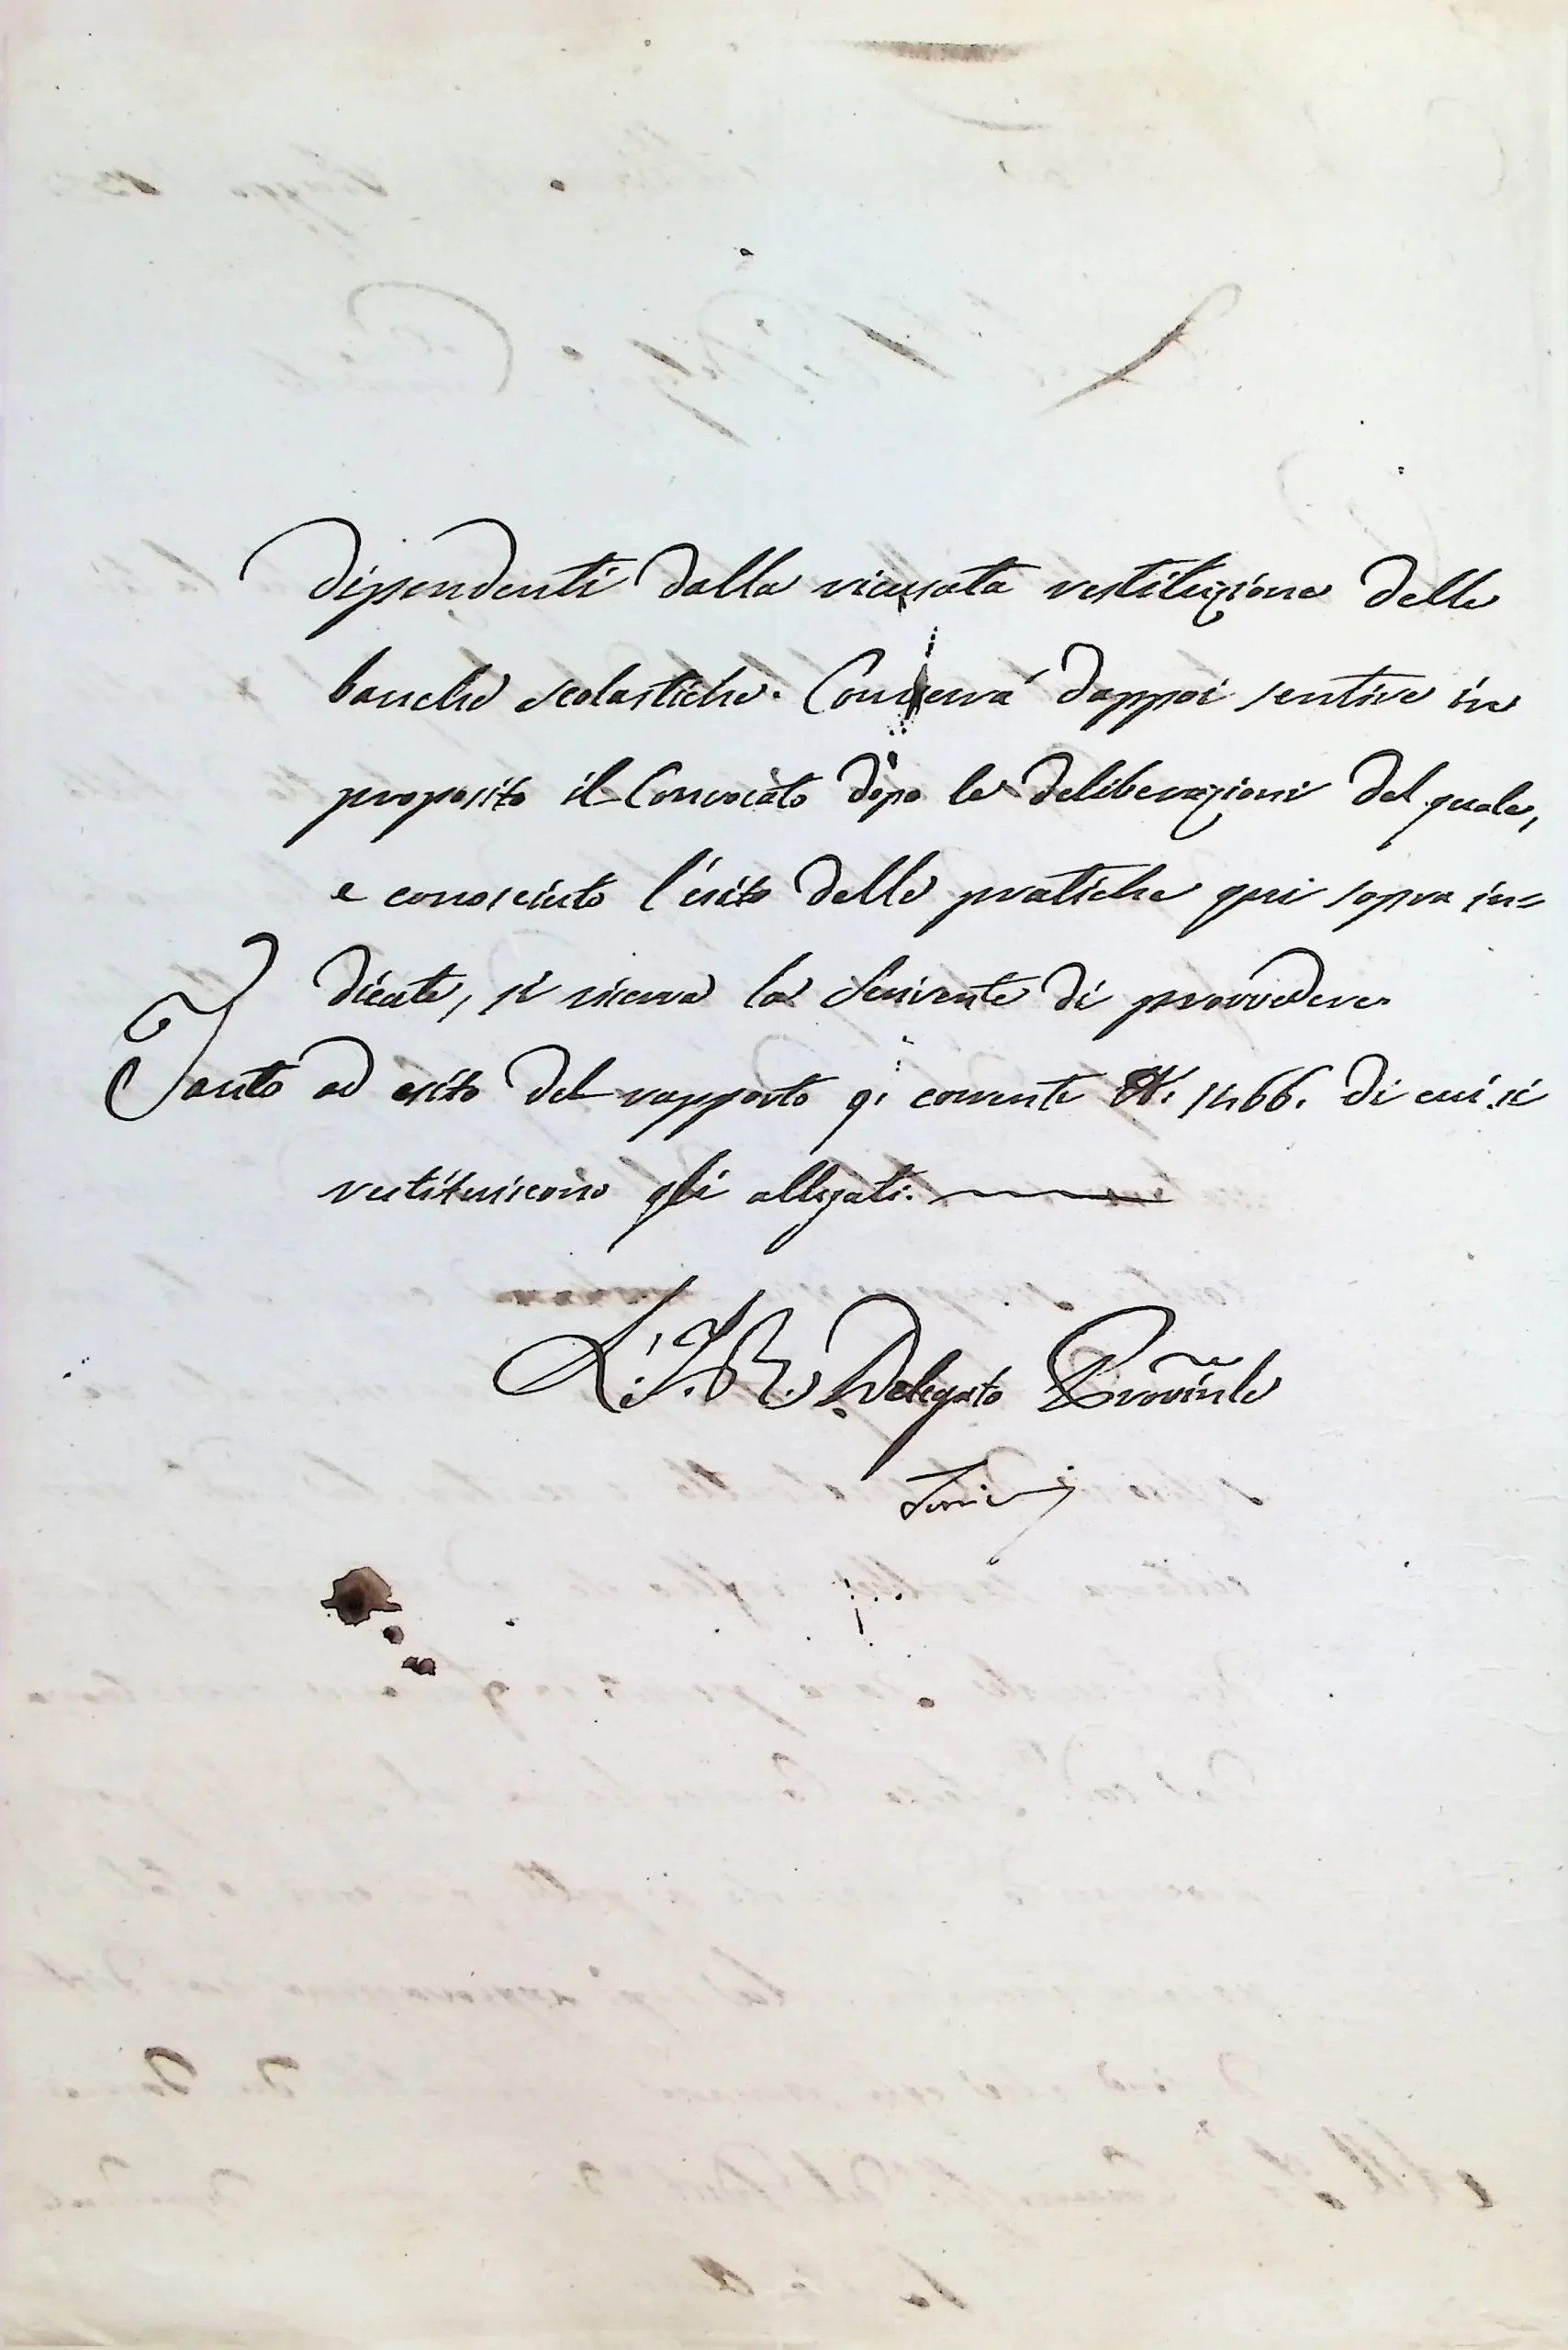 dipendenti dalla ricusata restituzione delle
banche scolastiche. Converrà dappoi sentire in
proposito il Convocato dopo le deliberazioni del quale,
e conosciuto l'esito delle pratiche qui sopra in=
dicate, si riserva la Scrivente di provvedere.
Tanto ad esito del rapporto 9. corrente N. 1466. di cui si
restituiscono gli allegati.
L'I. R. Delegato Provinle